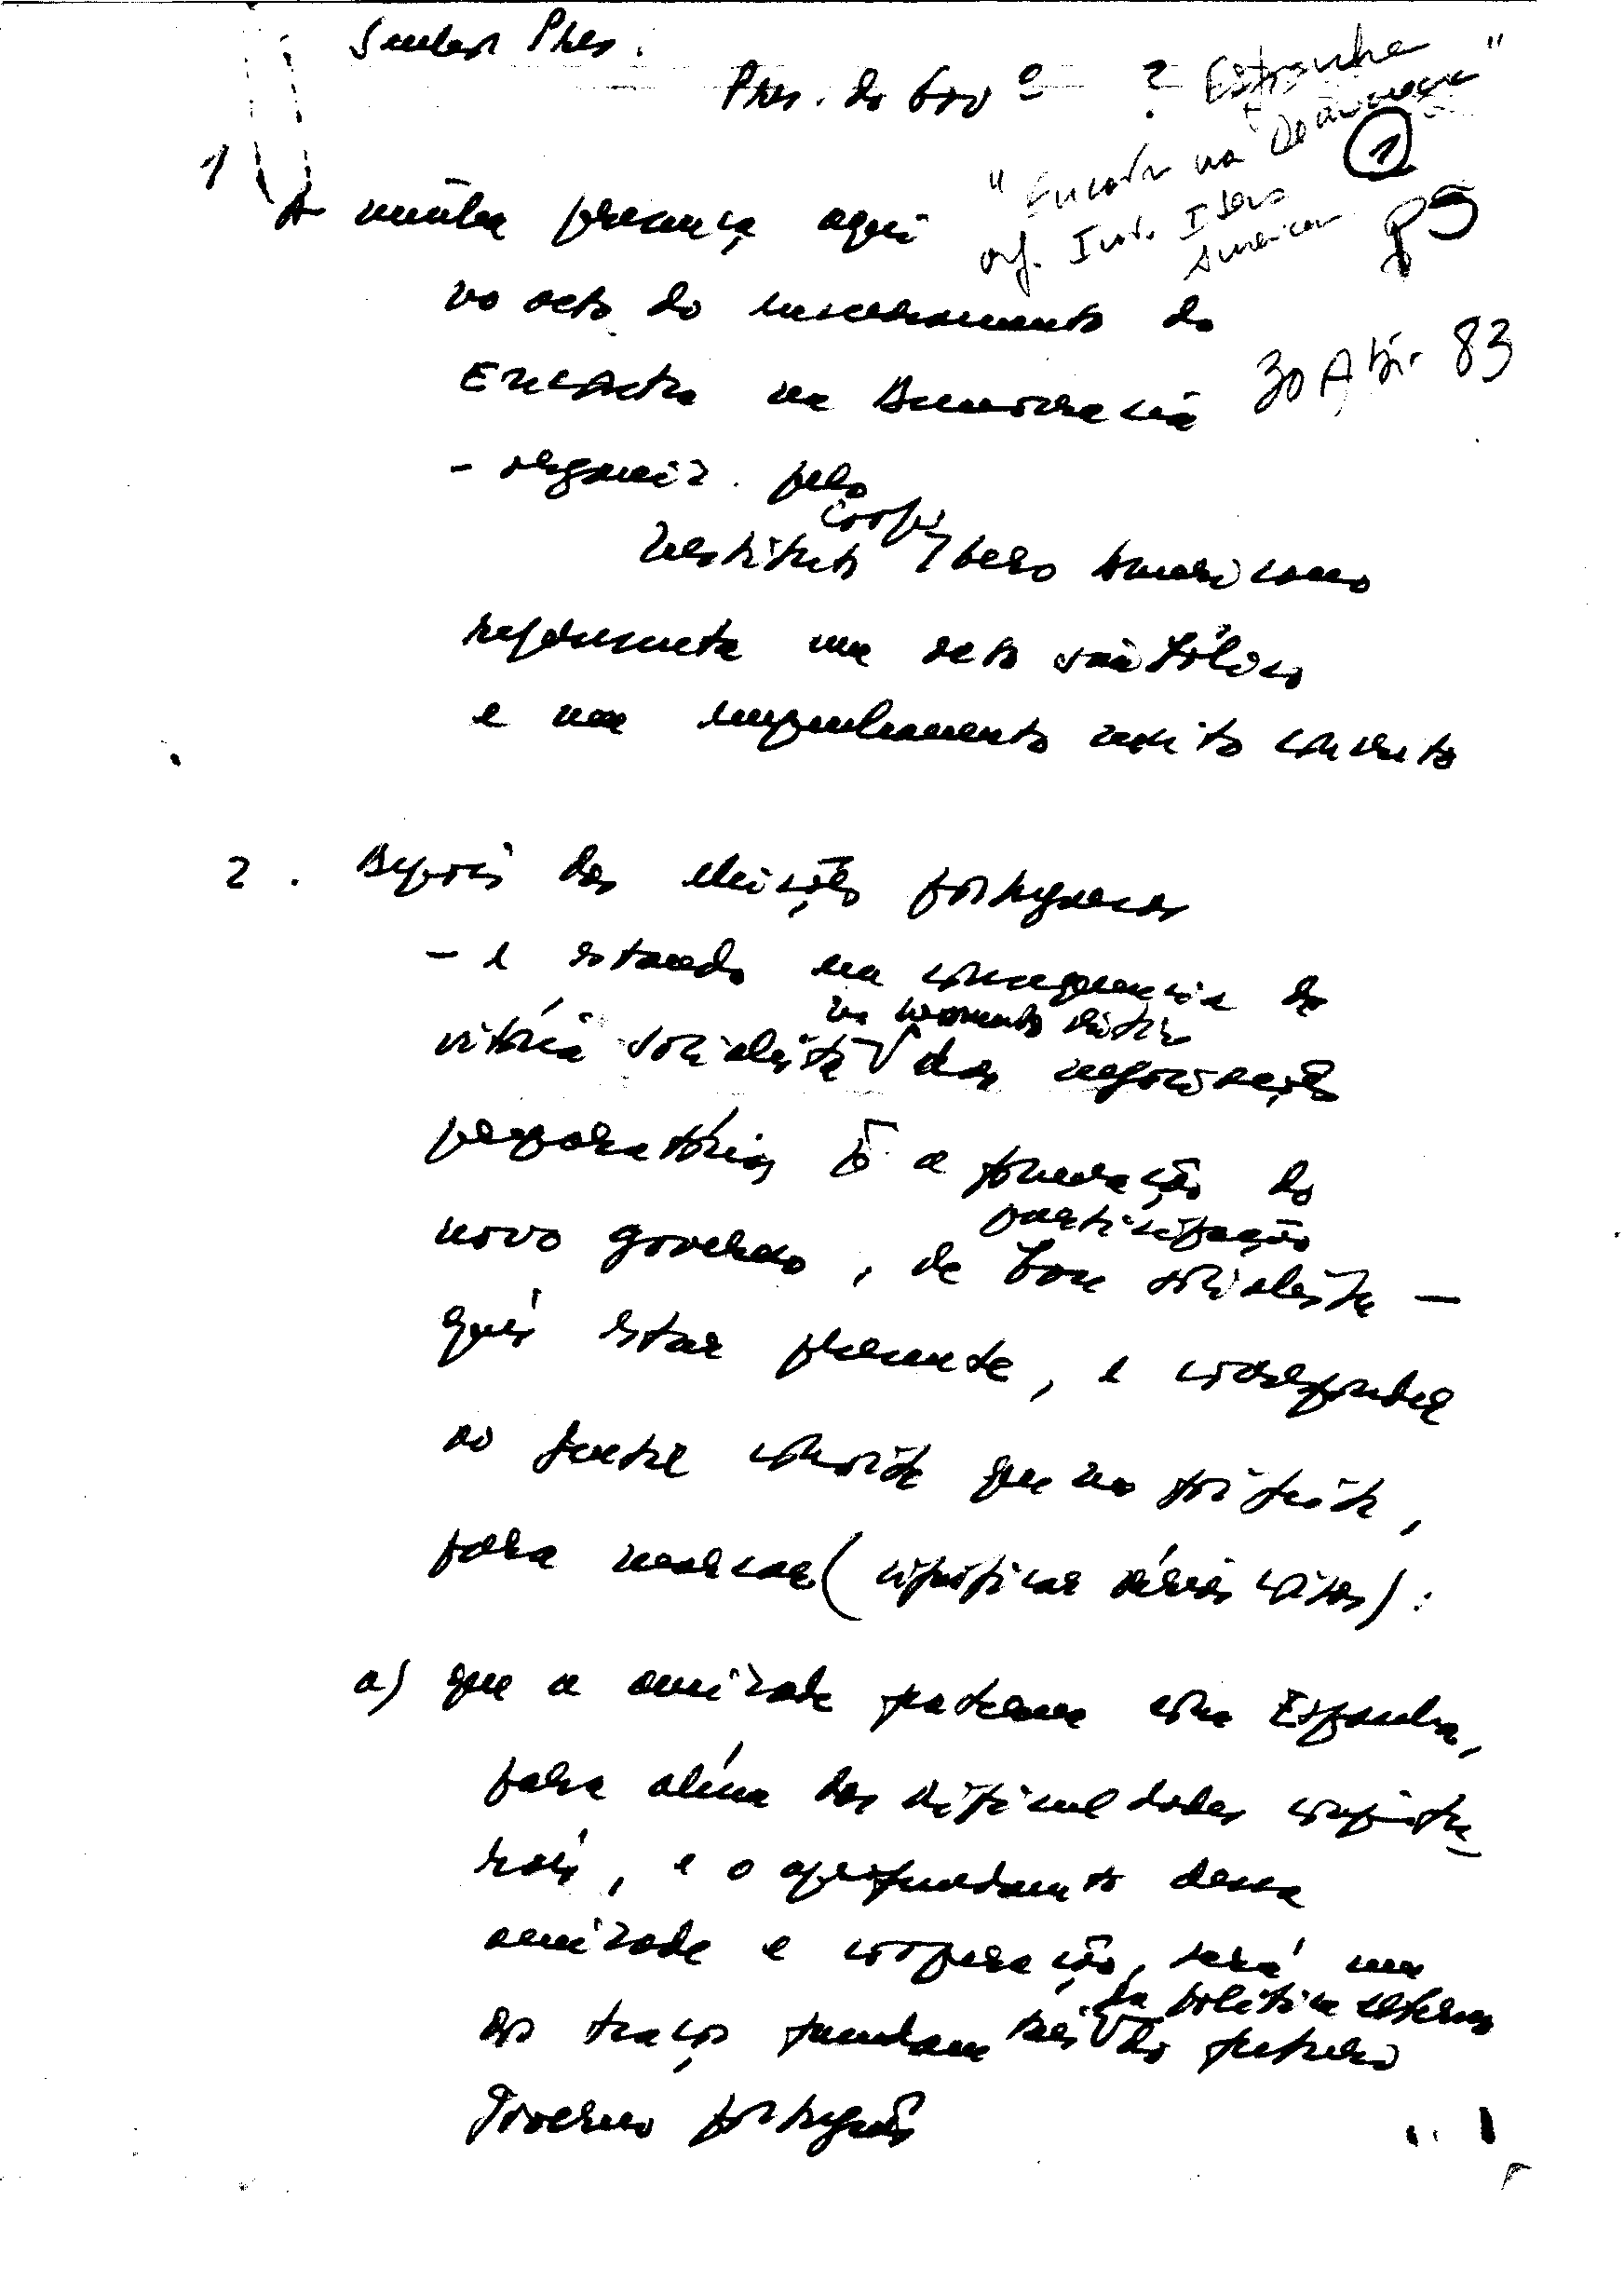 Senhor Pres.
Pres. do Govº ? Espanha
"Encontro na Democracia"
org. Inst. Ibero
Americano
1
PS
30 Abr. 83
1 A minha presença aqui
no acto do encerramento do
Encontro na Democracia
- organiz. pelo
Instituto Coop. Ibero Americano
representa um acto simbólico
e um empenhamento muito concreto
2. Depois das eleições portuguesas
- e estando na consequência da
vitória socialista no momento
das negociações
preparatórias pª a formação do
novo governo, de base participação
socialista -
quis estar presente, e corresponder
ao convite que me foi feito,
para marcar ( várias coisas) :
a) que a amizade fraterna com Espanha,
para além das dificuldades conjuntu
rais, e o aprofundamento dessa
amizade e cooperação, será um
dos traços fundamentais da política externa
do futuro
Governo português